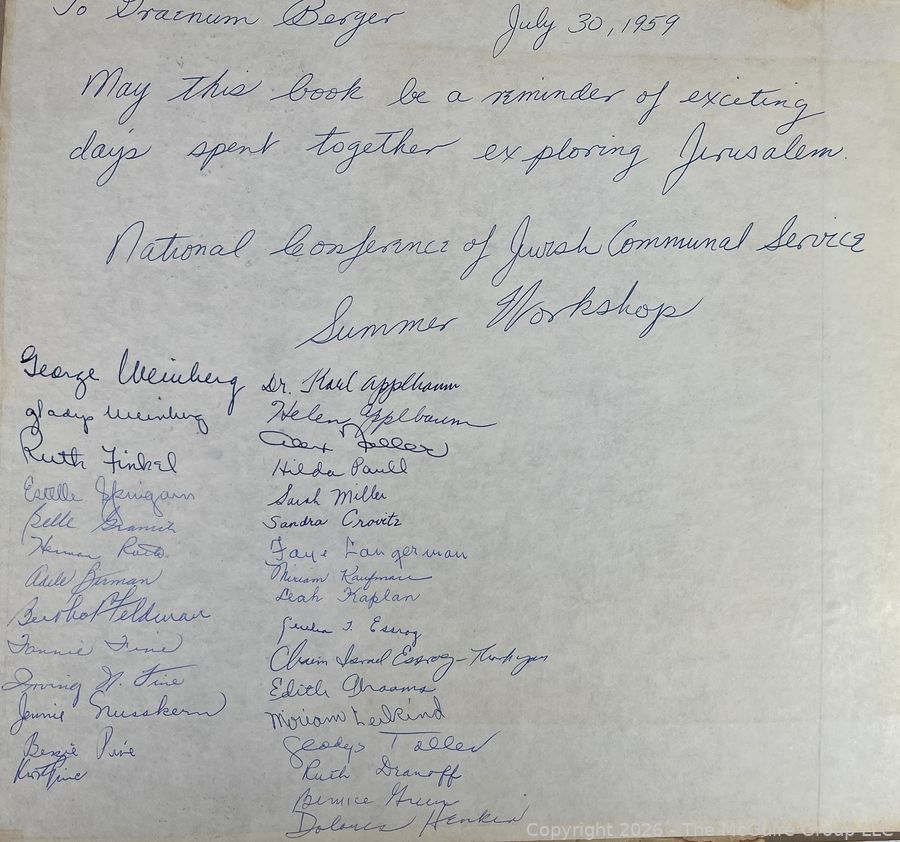 To Graenum Berger July 30, 1959
May this book be a reminder of exciting
days spent together exploring Jerusalem.
National Conference of Jewish Communal Service
Summer Workshop
George Weinberg
Gladys Weinberg
Ruth Finkel
Estelle Springarn
Belle
Herman
Adele Berman
Feldman
Fannie Fine
Irving N. Fine
Jennie Nusskern
Bessie Pine
Kurt Pine
Dr. Karl Applbaum
Helen Applbaum
Alex Toller
Hilda Paull
Sarah Miller
Sandra Crovitz
Faye Langerman
Miriam Kaufman
Leah Kaplan
Essrog
Chaim Israel Essrog
Edith Abrams
Miriam Leikind
Gladys Toller
Ruth Dranoff
Bernice Green
Dolores Henkin
Copyright 2026 - The McGuire Group LLC